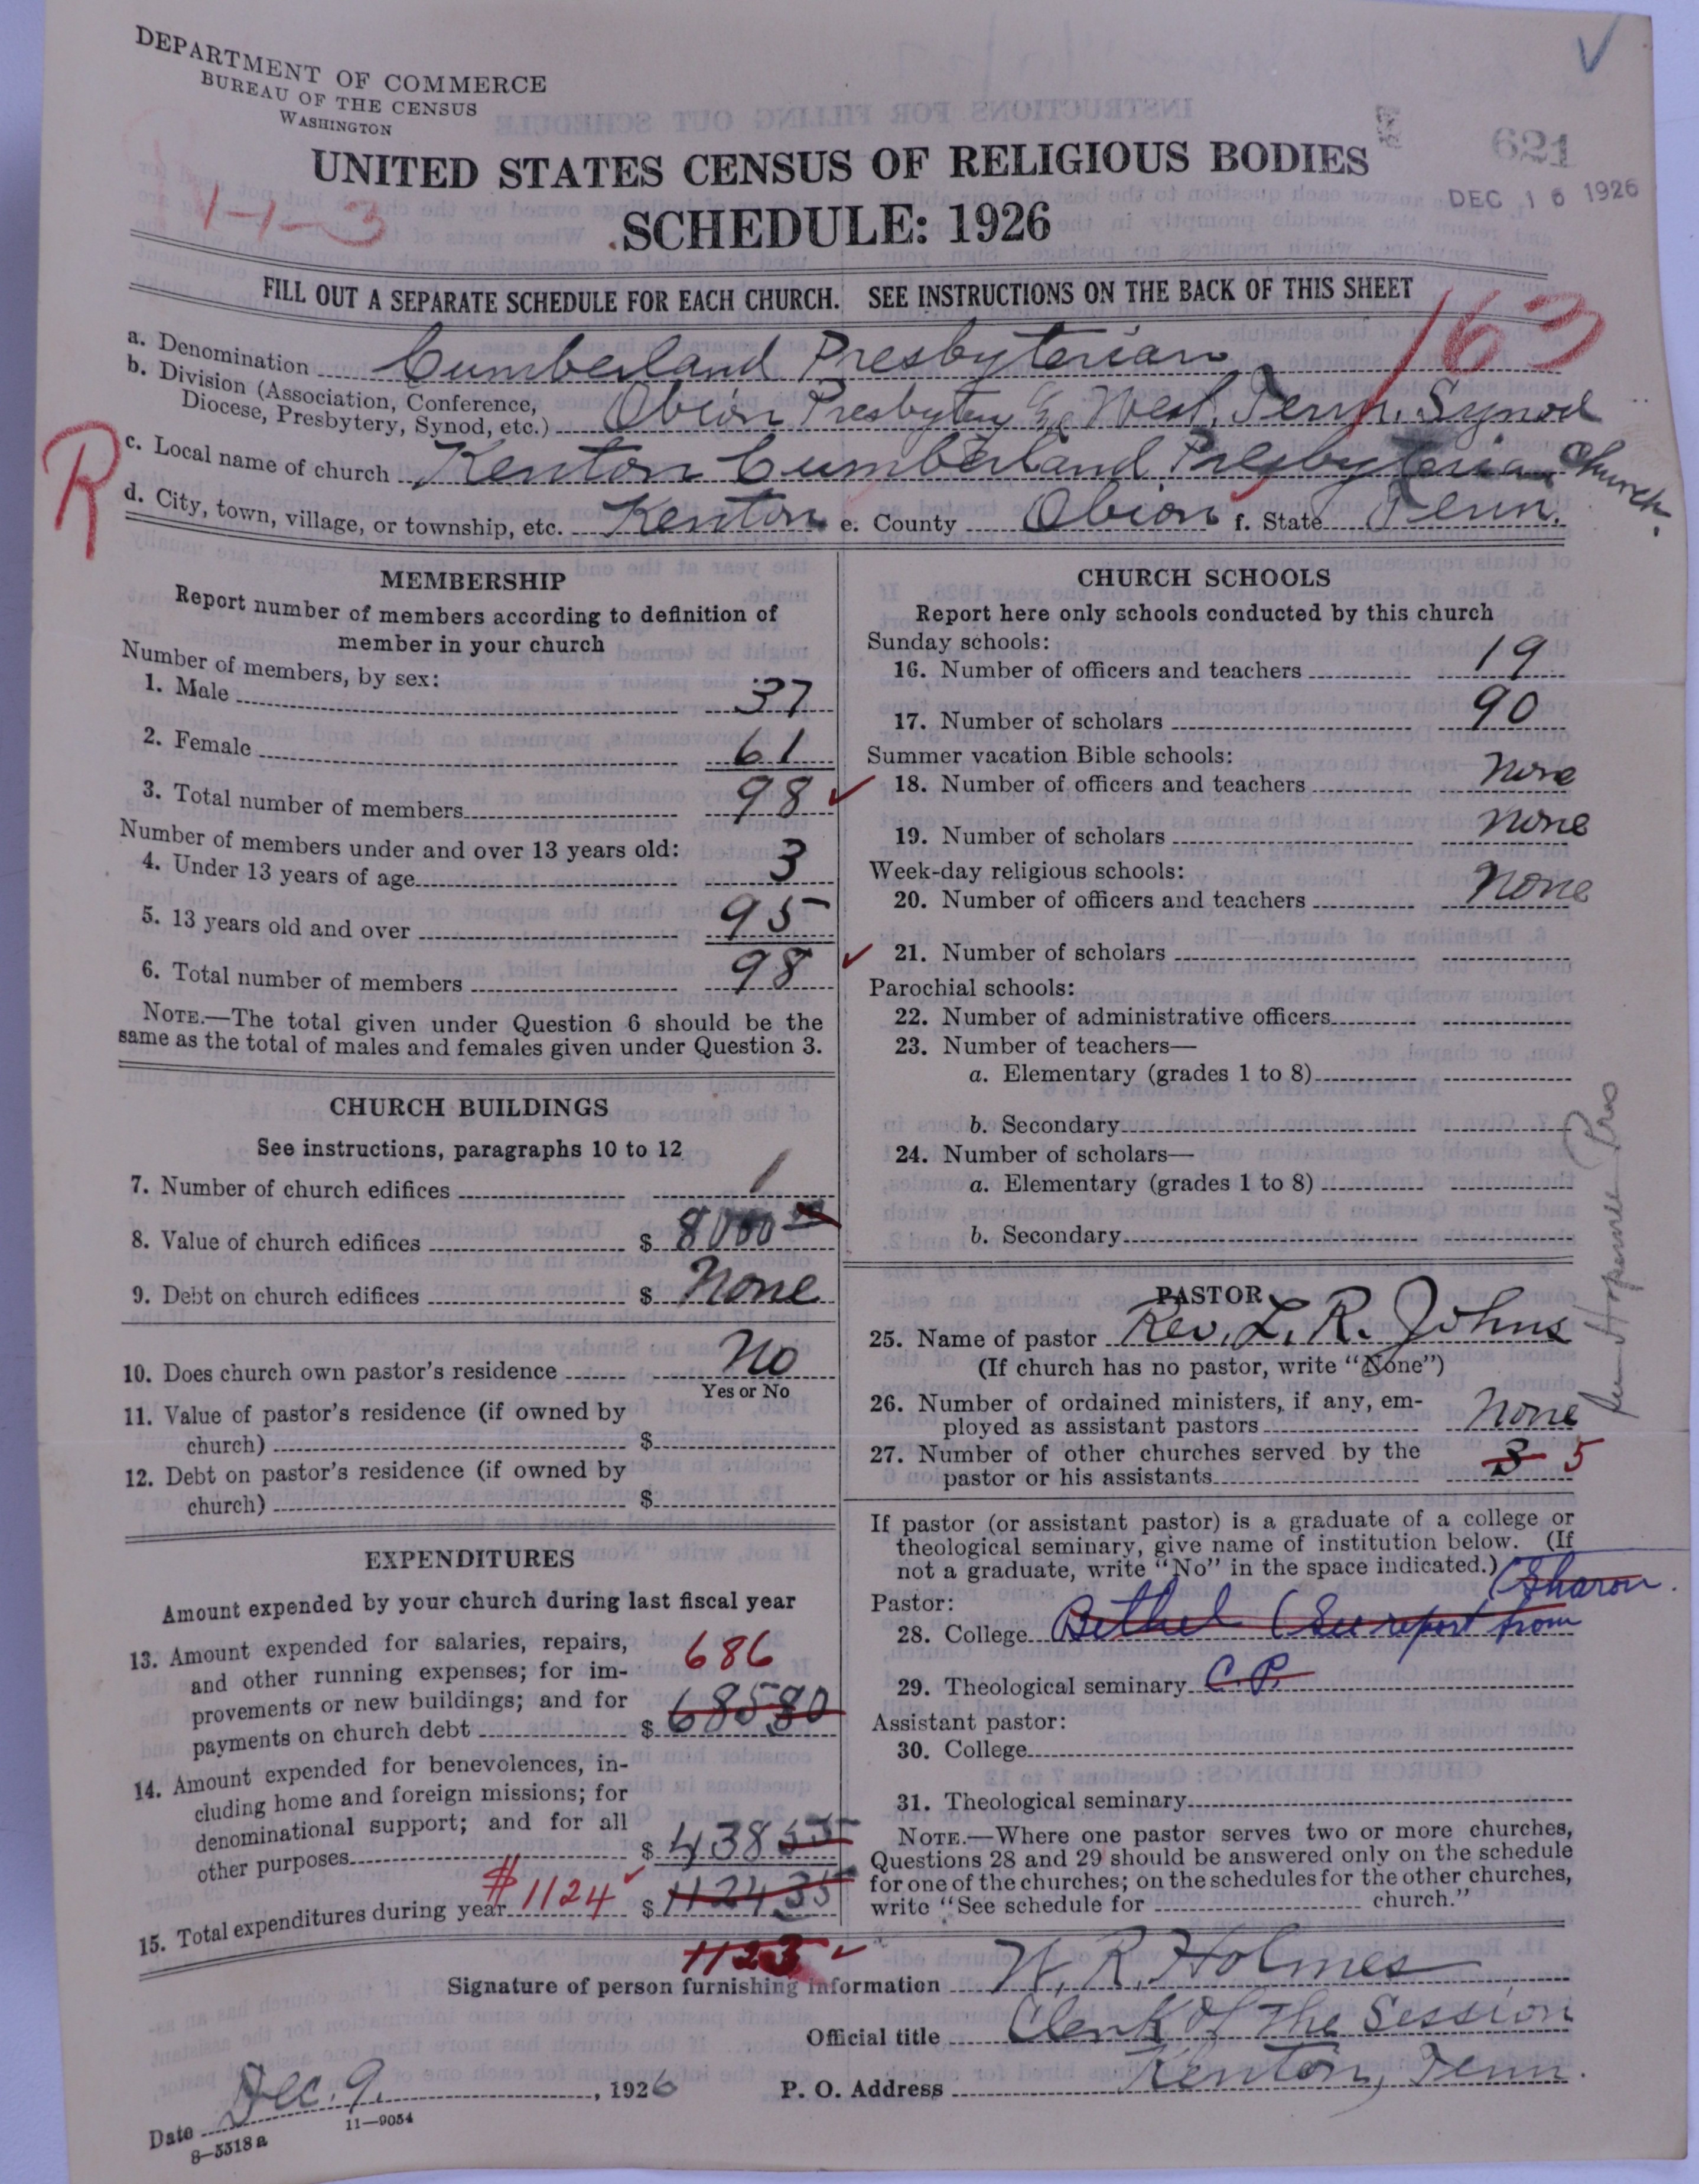 DEPARTMENT OF COMMERCE
BUREAU OF THE CENSUS
WASHINGTON
621
DEC 16 1926
UNITED STATES CENSUS OF RELIGIOUS BODIES
1-1-3
SCHEDULE: 1926
FILL OUT A SEPARATE SCHEDULE FOR EACH CHURCH. SEE INSTRUCTIONS ON THE BACK OF THIS SHEET
163
a. Denomination Cumberland Presbyterian
b. Division (Association, Conference, Diocese, Presbytery, Synod, etc.) Obion Presbytery West. Tenn. Synod
R
c. Local name of church Kenton Cumberland Presbyterian Church.
d. City, town, village, or township, etc. Kenton e. County Obion f. State Tenn.
MEMBERSHIP
Report number of members according to definition of
member in your church
Number of members, by sex:
1. Male 37
2. Female 61
3. Total number of members 98
Number of members under and over 13 years old:
4. Under 13 years of age 3
5. 13 years old and over 95
6. Total number of members 98
NOTE.—The total given under Question 6 should be the
same as the total of males and females given under Question 3.
CHURCH BUILDINGS
See instructions, paragraphs 10 to 12
7. Number of church edifices 1
8. Value of church edifices $ 8000
9. Debt on church edifices $ None
10. Does church own pastor's residence No
Yes or No
11. Value of pastor's residence (if owned by
church) $
12. Debt on pastor's residence (if owned by
church) $
EXPENDITURES
Amount expended by your church during last fiscal year
13. Amount expended for salaries, repairs,
and other running expenses; for im-
provements or new buildings; and for
payments on church debt $ 685 80
686
14. Amount expended for benevolences, in-
cluding home and foreign missions; for
denominational support; and for all
other purposes $ 438 55
15. Total expenditures during year $1124 $ 1124 35
1123
CHURCH SCHOOLS
Report here only schools conducted by this church
Sunday schools:
16. Number of officers and teachers 19
17. Number of scholars 90
Summer vacation Bible schools:
18. Number of officers and teachers None
19. Number of scholars None
Week-day religious schools:
20. Number of officers and teachers None
21. Number of scholars
Parochial schools:
22. Number of administrative officers
23. Number of teachers—
a. Elementary (grades 1 to 8)
b. Secondary
24. Number of scholars—
a. Elementary (grades 1 to 8)
b. Secondary
PASTOR
25. Name of pastor Rev. L. R. Johns
(If church has no pastor, write "None")
26. Number of ordained ministers, if any, em-
ployed as assistant pastors None
27. Number of other churches served by the
pastor or his assistants 3 5
If pastor (or assistant pastor) is a graduate of a college or
theological seminary, give name of institution below. (If
not a graduate, write "No" in the space indicated.)
Pastor:
28. College Bethel (See report from Sharon
29. Theological seminary C.P.
Assistant pastor:
30. College
31. Theological seminary
NOTE.—Where one pastor serves two or more churches,
Questions 28 and 29 should be answered only on the schedule
for one of the churches; on the schedules for the other churches,
write "See schedule for church."
Signature of person furnishing information W. R. Holmes
Official title Clerk of the Session
Date Dec. 9. , 1926 P. O. Address Kenton, Tenn.
8—5518a 11—9054